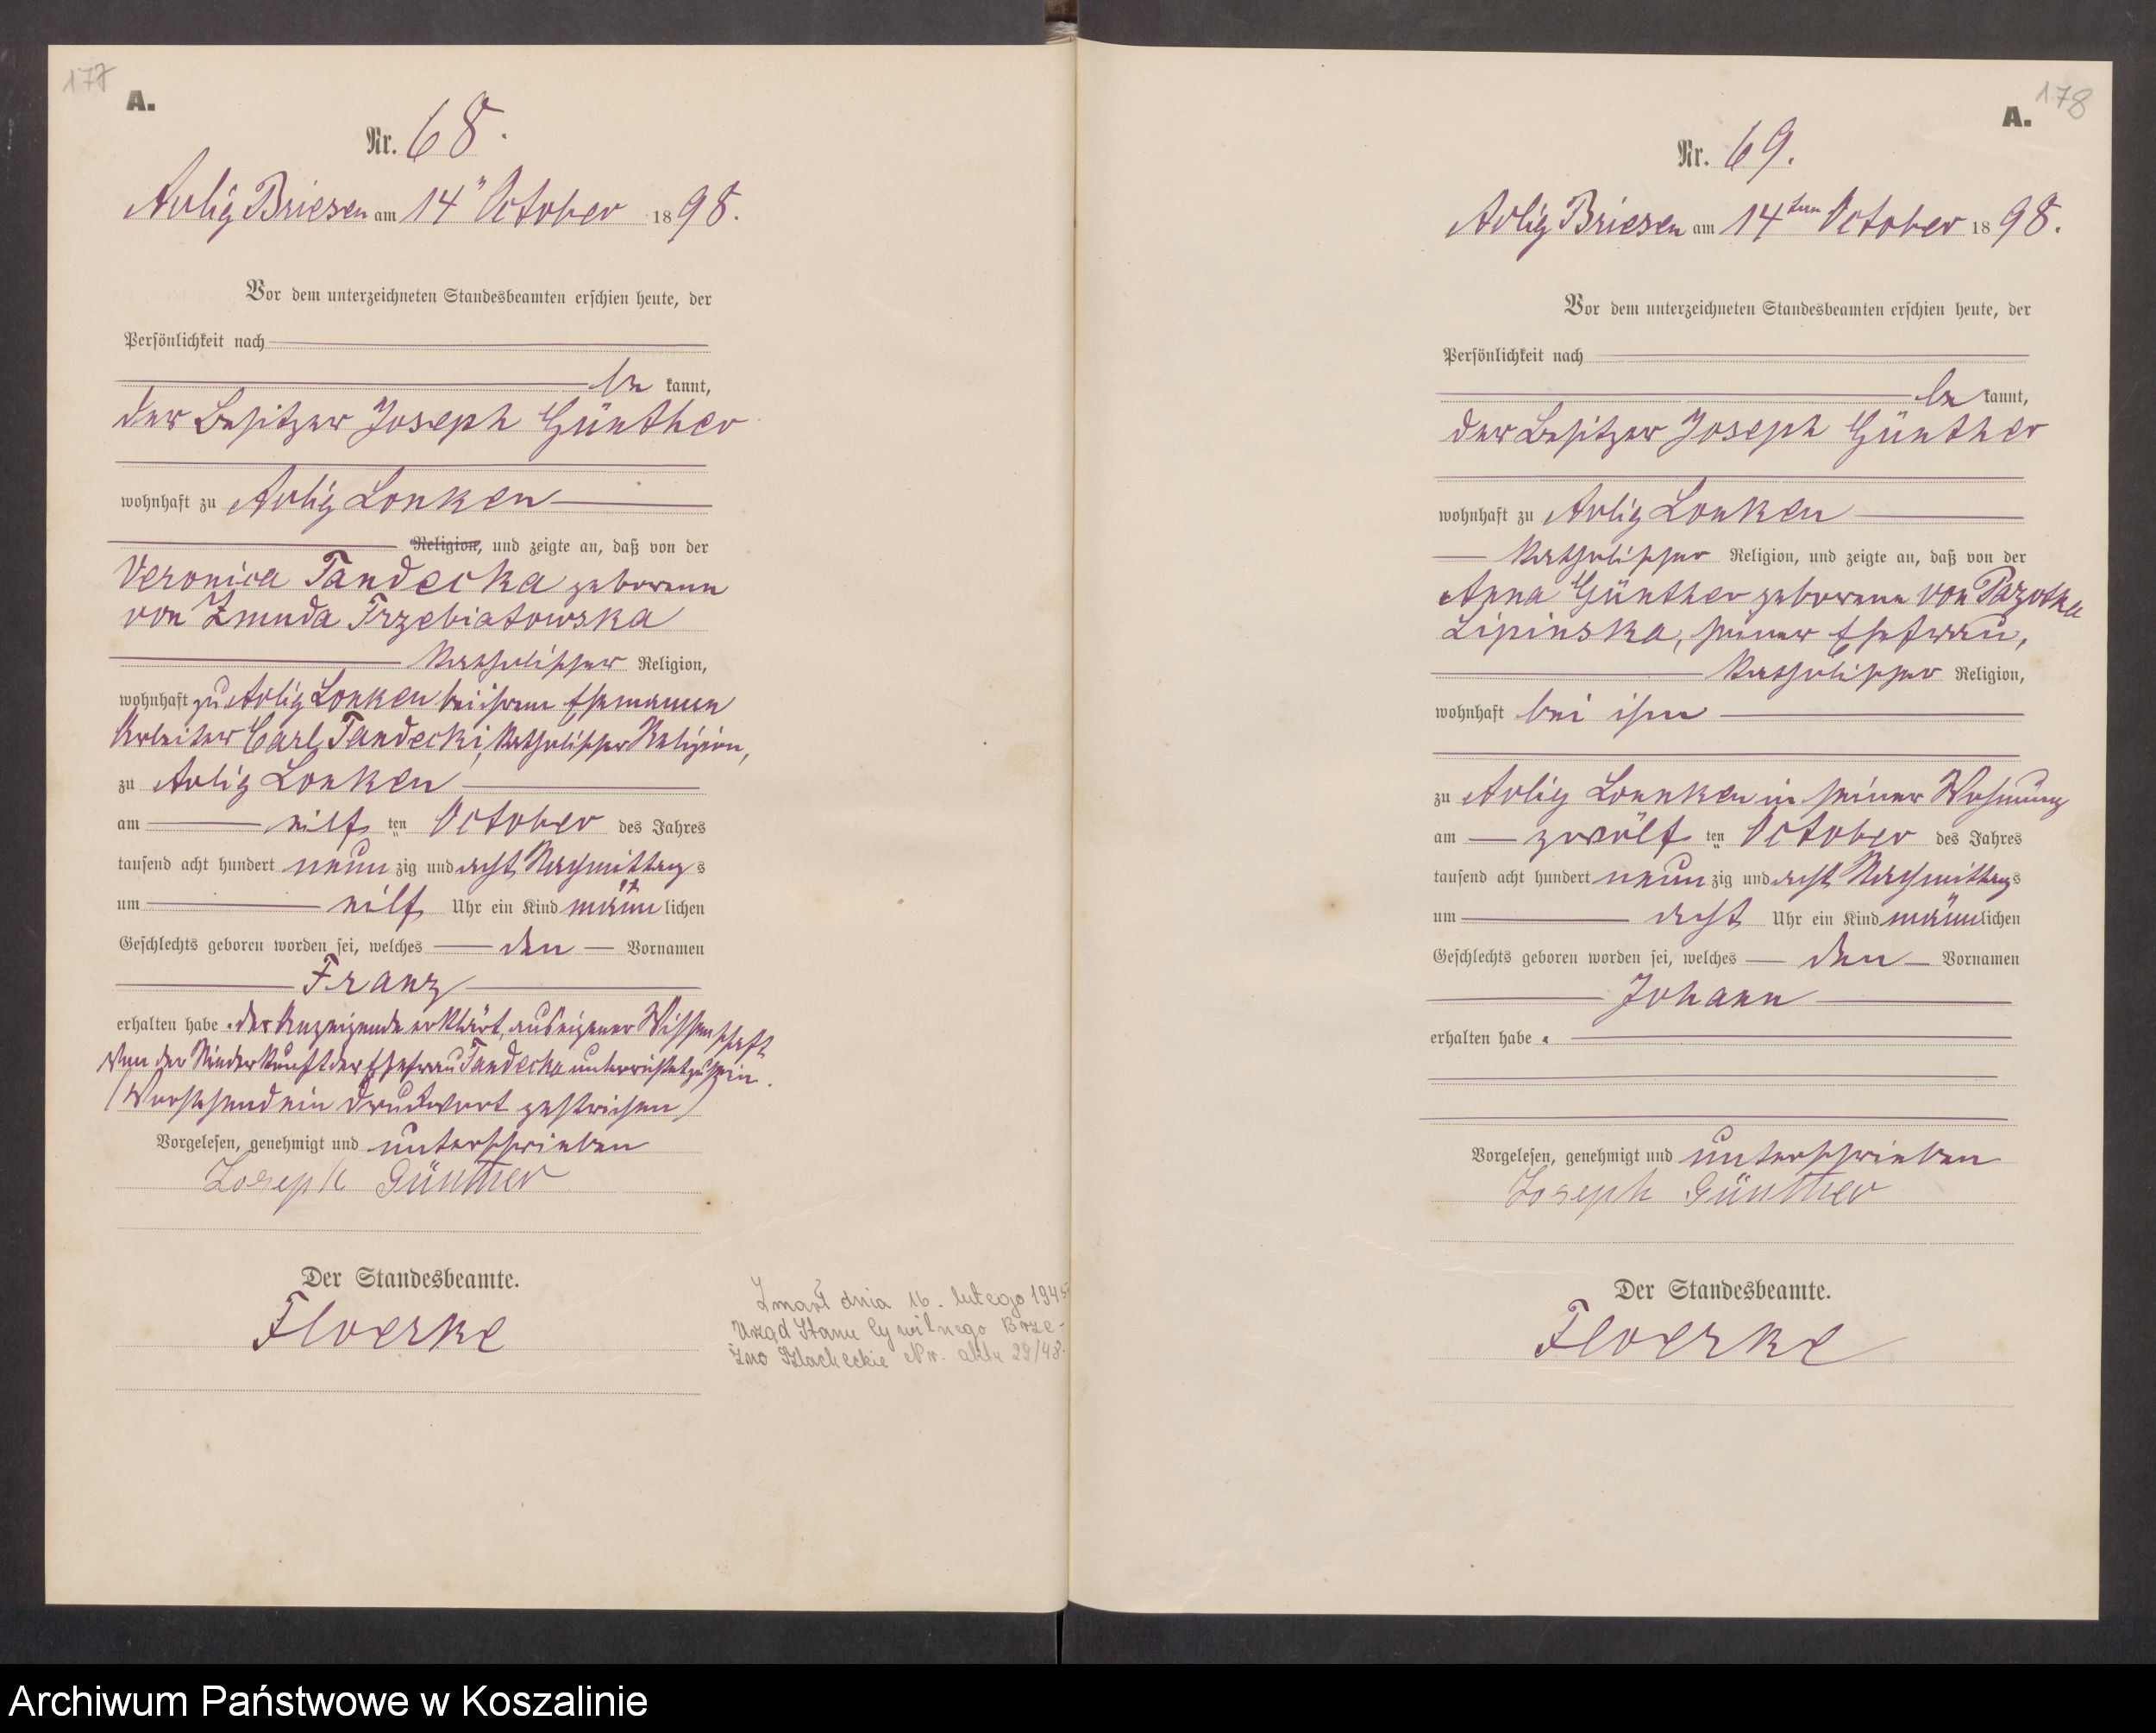 177
A.
Nr. 68.
Adlig Briesen am 14" October 1898.
Vor dem unterzeichneten Standesbeamten erschien heute, der
Persönlichkeit nach
be kannt,
der Besitzer Joseph Günther
wohnhaft zu Adlig Lonken
Religion, und zeigte an, daß von der
Veronica Tandecka geborene
von Zmuda Trzebiatowska
katholischer Religion,
wohnhaft zu Adlig Lonken bei ihrem Ehemanne
Arbeiter Carl Tandecki, katholischer Religion,
zu Adlig Lonken
am eilf ten October des Jahres
tausend acht hundert neun zig und acht Nachmittag s
um eilf Uhr ein Kind männ lichen
Geschlechts geboren worden sei, welches den Vornamen
Franz
erhalten habe. Der Anzeigende erklärt, aus eigener Wissenschaft
von der Niederkunft der Ehefrau Tandecka unterrichtet zu sein.
(Vorstehend ein Druckwort gestrichen)
Vorgelesen, genehmigt und unterschrieben
Joseph Günther
Der Standesbeamte.
Floerke
Zmarł dnia 16. lutego 1945
Urząd Stanu Cywilnego Brze-
źno Szlacheckie Nr. aktu 29/48.
178
A.
Nr. 69.
Adlig Briesen am 14ten October 1898.
Vor dem unterzeichneten Standesbeamten erschien heute, der
Persönlichkeit nach
be kannt,
der Besitzer Joseph Günther
wohnhaft zu Adlig Lonken
katholischer Religion, und zeigte an, daß von der
Anna Günther geborene von Pazotka
Lipinska, seiner Ehefrau,
katholischer Religion,
wohnhaft bei ihm
zu Adlig Lonnken in seiner Wohnung
am zwölf ten October des Jahres
tausend acht hundert neun zig und acht Nachmittags
um acht Uhr ein Kind männlichen
Geschlechts geboren worden sei, welches den Vornamen
Johann
erhalten habe.
Vorgelesen, genehmigt und unterschrieben
Joseph Günther
Der Standesbeamte.
Floerke
Archiwum Państwowe w Koszalinie